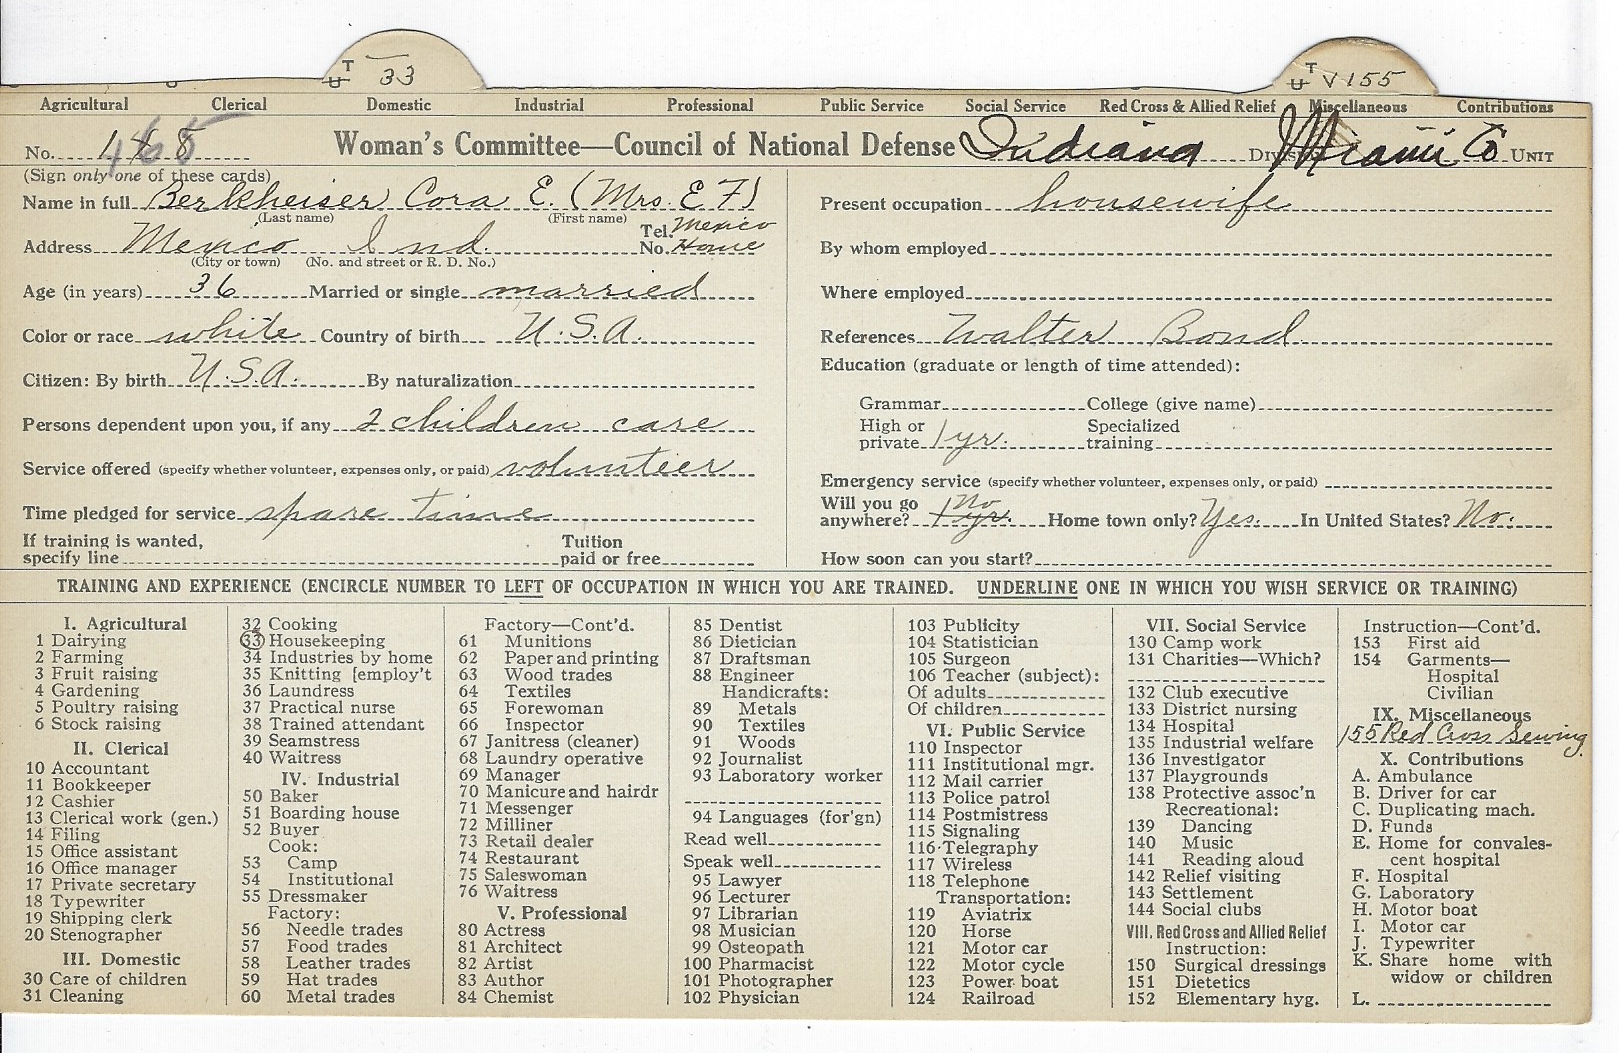 T
U 33
T
U V 155
Agricultural Clerical Domestic Industrial Professional Public Service Social Service Red Cross & Allied Relief Miscellaneous Contributions
No. Woman's Committee—Council of National Defense Indiana Division Miami Co UNIT
(Sign only one of these cards)
Name in full Berkheiser Cora E. (Mrs. E F)
(Last name) (First name)
Address Mexico Ind. Tel. No. Mexico Home
(City or town) (No. and street or R. D. No.)
Age (in years) 36 Married or single married
Color or race white Country of birth U.S.A.
Citizen: By birth U.S.A. By naturalization
Persons dependent upon you, if any 2 children care
Service offered (specify whether volunteer, expenses only, or paid) volunteer
Time pledged for service spare time
If training is wanted, specify line Tuition paid or free
Present occupation housewife
By whom employed
Where employed
References Walter Bond
Education (graduate or length of time attended):
Grammar College (give name)
High or private 1 yr. Specialized training
Emergency service (specify whether volunteer, expenses only, or paid)
Will you go anywhere? 1 yr. No Home town only? Yes. In United States? No.
How soon can you start?
TRAINING AND EXPERIENCE (ENCIRCLE NUMBER TO LEFT OF OCCUPATION IN WHICH YOU ARE TRAINED. UNDERLINE ONE IN WHICH YOU WISH SERVICE OR TRAINING)
I. Agricultural
1 Dairying
2 Farming
3 Fruit raising
4 Gardening
5 Poultry raising
6 Stock raising
II. Clerical
10 Accountant
11 Bookkeeper
12 Cashier
13 Clerical work (gen.)
14 Filing
15 Office assistant
16 Office manager
17 Private secretary
18 Typewriter
19 Shipping clerk
20 Stenographer
III. Domestic
30 Care of children
31 Cleaning
32 Cooking
33 Housekeeping
34 Industries by home
35 Knitting [employ't
36 Laundress
37 Practical nurse
38 Trained attendant
39 Seamstress
40 Waitress
IV. Industrial
50 Baker
51 Boarding house
52 Buyer
Cook:
53 Camp
54 Institutional
55 Dressmaker
Factory:
56 Needle trades
57 Food trades
58 Leather trades
59 Hat trades
60 Metal trades
Factory—Cont'd.
61 Munitions
62 Paper and printing
63 Wood trades
64 Textiles
65 Forewoman
66 Inspector
67 Janitress (cleaner)
68 Laundry operative
69 Manager
70 Manicure and hairdr
71 Messenger
72 Milliner
73 Retail dealer
74 Restaurant
75 Saleswoman
76 Waitress
V. Professional
80 Actress
81 Architect
82 Artist
83 Author
84 Chemist
85 Dentist
86 Dietician
87 Draftsman
88 Engineer
Handicrafts:
89 Metals
90 Textiles
91 Woods
92 Journalist
93 Laboratory worker
94 Languages (for'gn)
Read well
Speak well
95 Lawyer
96 Lecturer
97 Librarian
98 Musician
99 Osteopath
100 Pharmacist
101 Photographer
102 Physician
103 Publicity
104 Statistician
105 Surgeon
106 Teacher (subject):
Of adults
Of children
VI. Public Service
110 Inspector
111 Institutional mgr.
112 Mail carrier
113 Police patrol
114 Postmistress
115 Signaling
116 Telegraphy
117 Wireless
118 Telephone
Transportation:
119 Aviatrix
120 Horse
121 Motor car
122 Motor cycle
123 Power boat
124 Railroad
VII. Social Service
130 Camp work
131 Charities—Which?
132 Club executive
133 District nursing
134 Hospital
135 Industrial welfare
136 Investigator
137 Playgrounds
138 Protective assoc'n
Recreational:
139 Dancing
140 Music
141 Reading aloud
142 Relief visiting
143 Settlement
144 Social clubs
VIII. Red Cross and Allied Relief
Instruction:
150 Surgical dressings
151 Dietetics
152 Elementary hyg.
Instruction—Cont'd.
153 First aid
154 Garments—
Hospital
Civilian
IX. Miscellaneous
155 Red Cross Sewing
X. Contributions
A. Ambulance
B. Driver for car
C. Duplicating mach.
D. Funds
E. Home for convales-
cent hospital
F. Hospital
G. Laboratory
H. Motor boat
I. Motor car
J. Typewriter
K. Share home with
widow or children
L.